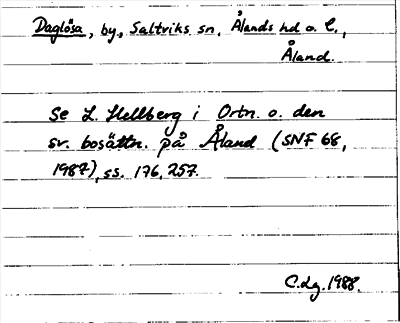 Daglösa, by, Saltviks sn, Ålands hd o. l.,
Åland.
Se L. Hellberg i Ortn. o. den
sv. bosättn. på Åland (SNF 68,
1987), ss. 176, 257.
C.Lg. 1988.